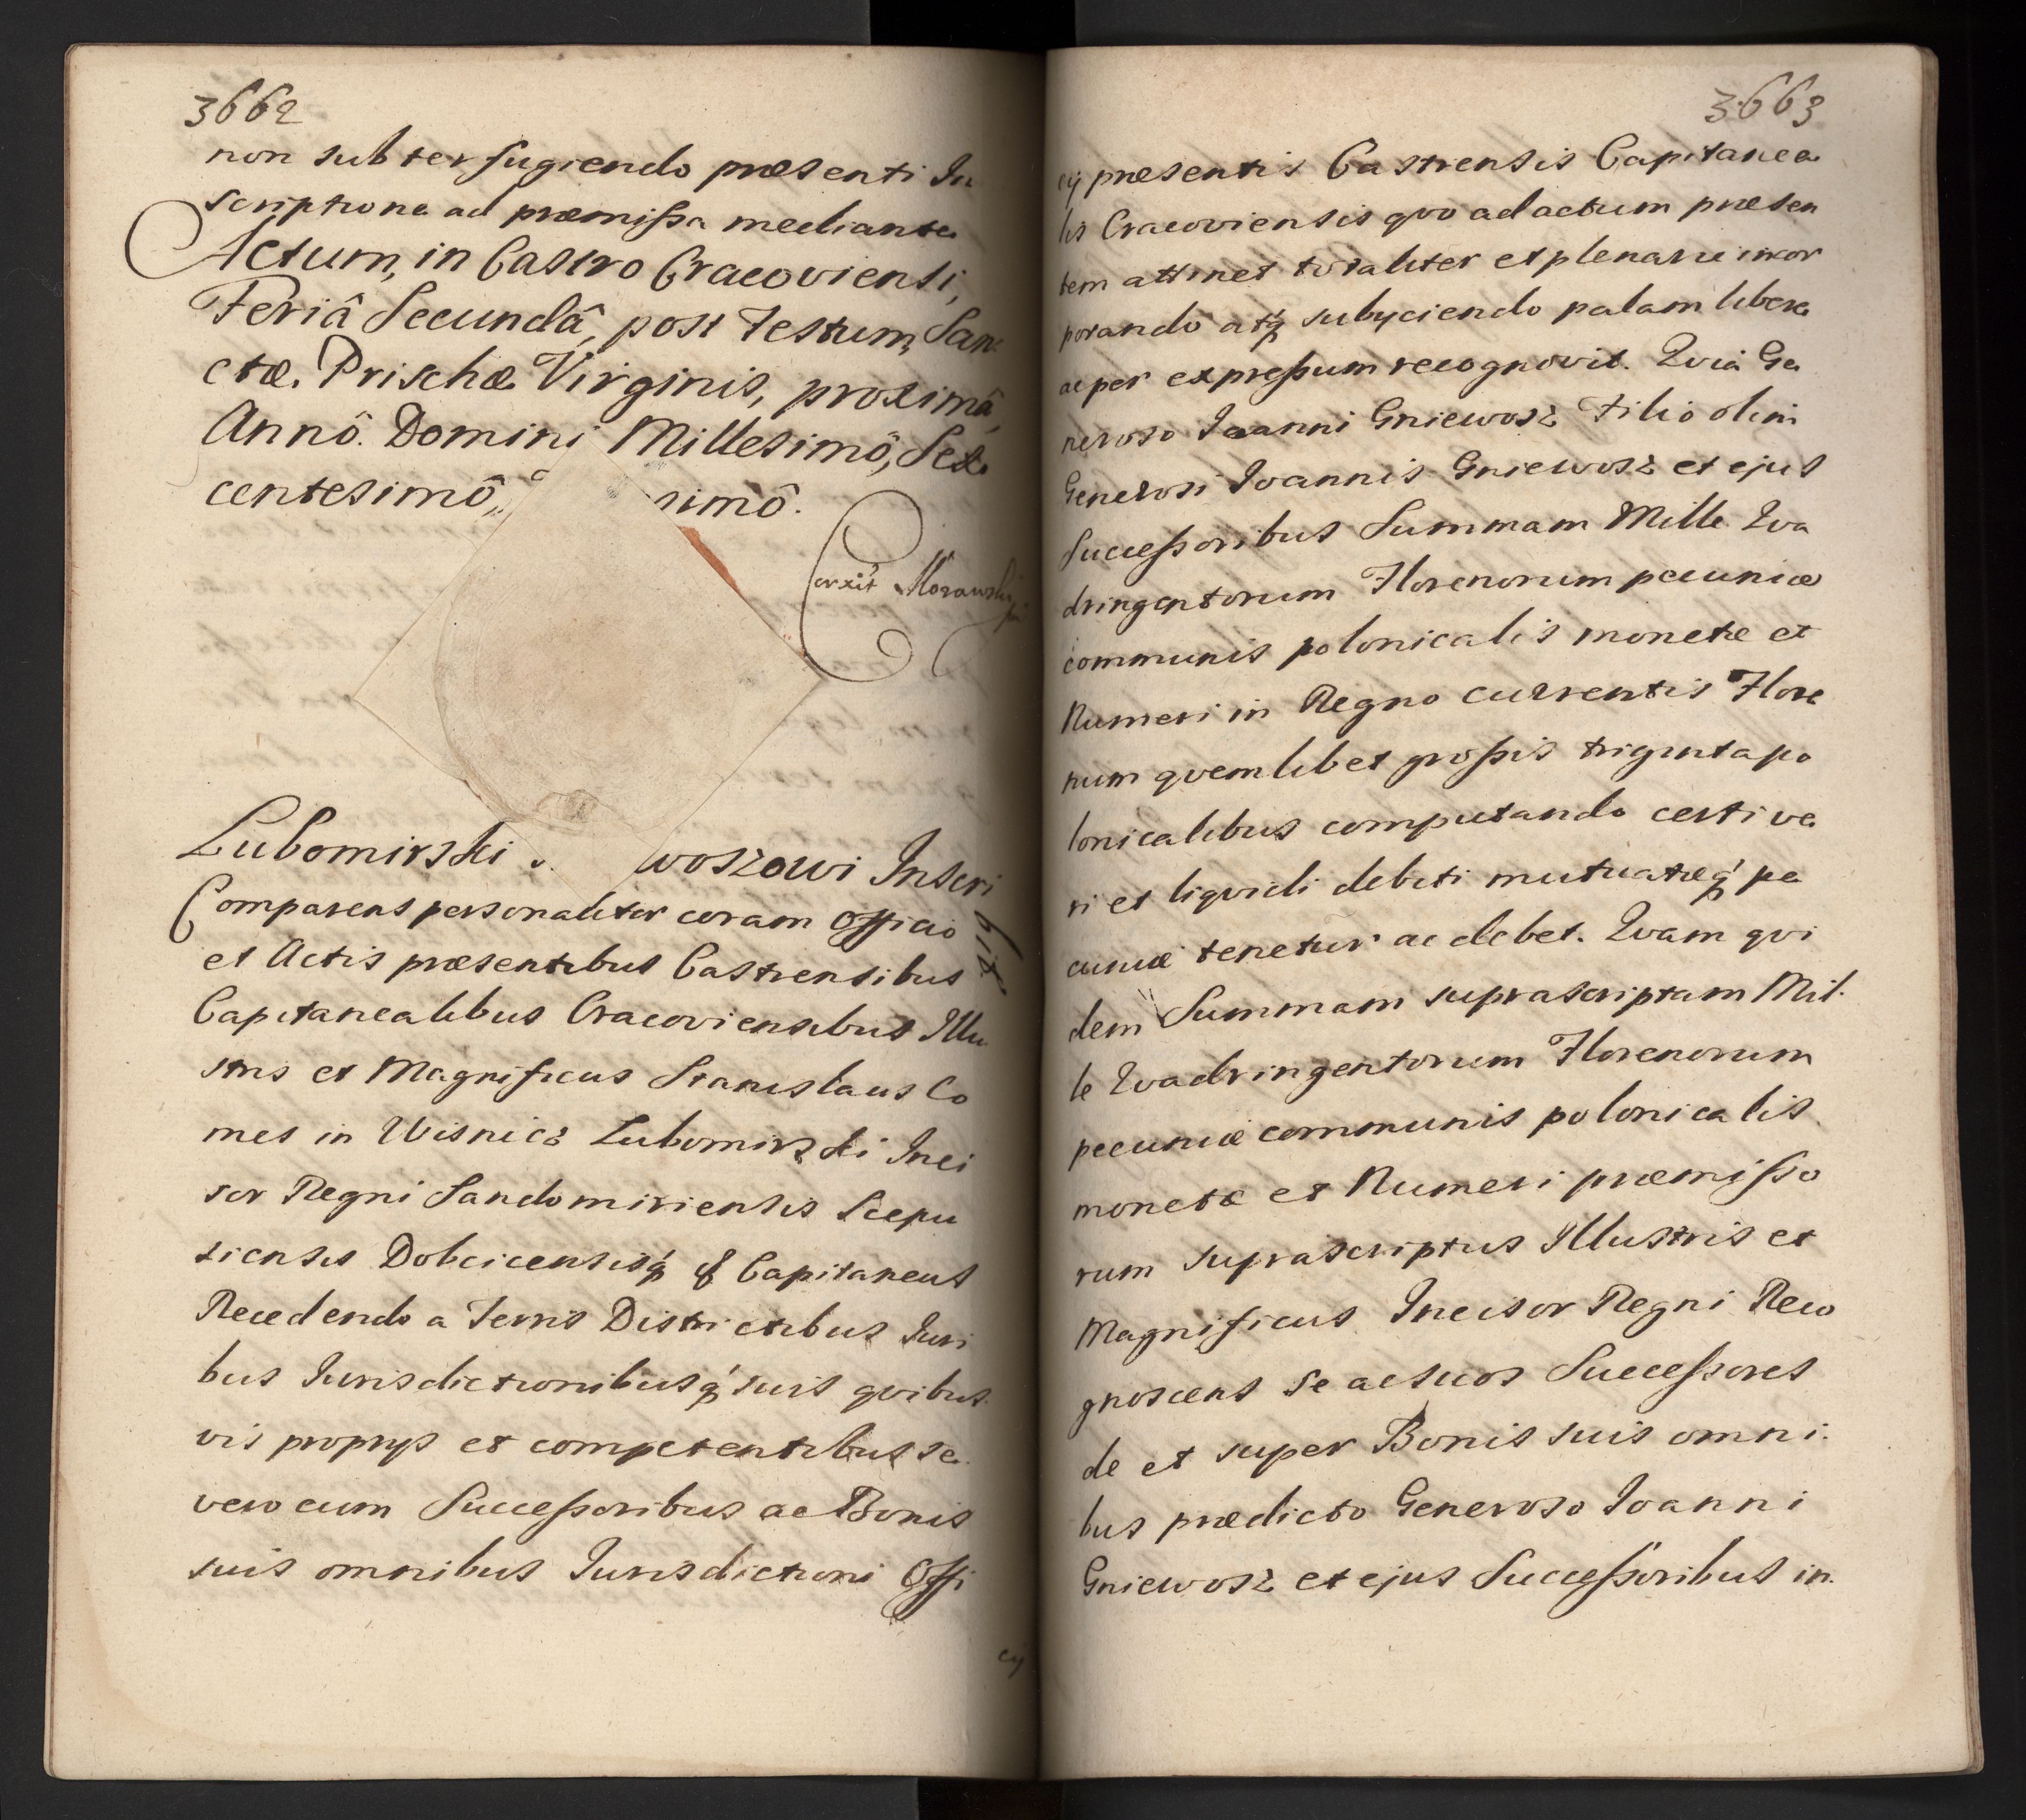 3662
non subterfugiendo præsenti In
scriptione ad præmissa mediante
Actum, in Castro Cracoviensi,
Feriâ Secundâ, post Festum, San
ctæ Prischæ Virginis, proximâ,
Annô Domini Millesimô, Sex
centesimô, simô.
Corxit Morawski
Lubomirski woszowi Inscri
bit
Comparens personaliter coram Officio
et Actis præsentibus Castrensibus
Capitanealibus Cracoviensibus Illu
stris et Magnificus Stanislaus Co
mes in Wisnicz Lubomirski Inci
sor Regni Sandomiriensis Scepu
siensis Dobcicensisq́ Capitaneus
Recedendo a Terris Districtibus Juri
bus Jurisdictionibusq́ suis qvibus
vis proprijs et competentibus se
vero cum Successoribus ac Bonis
suis omnibus Jurisdictioni Offi
cij
3663
cij præsentis Castrensis Capitanea
lis Cracoviensis qvo ad actum præsen
tem attinet totaliter et plenarie incor
porando atq́ subijciendo palam libere
ac per expressum recognovit. Qvia Ge
neroso Joanni Gniewosz Filio olim
Generosi Joannis Gniewosz et ejus
Successoribus Summam Mille Qva
dringentorum Florenorum pecuniæ
communis polonicalis monetæ et
Numeri in Regno currentis Flore
num qvemlibet grossis triginta po
lonicalibus computando certi ve
ri et liqvidi debiti mutuatæq́ pe
cuniæ tenetur ac debet. Qvam qvi
dem Summam suprascriptam Mil
le Qvadringentorum Florenorum
pecuniæ communis polonicalis
monetæ et Numeri præmisso
rum suprascriptus Illustris et
Magnificus Incisor Regni Reco
gnoscens se ac suos Successores
de et super Bonis suis omni
bus prædicto Generoso Joanni
Gniewosz et ejus Successoribus in